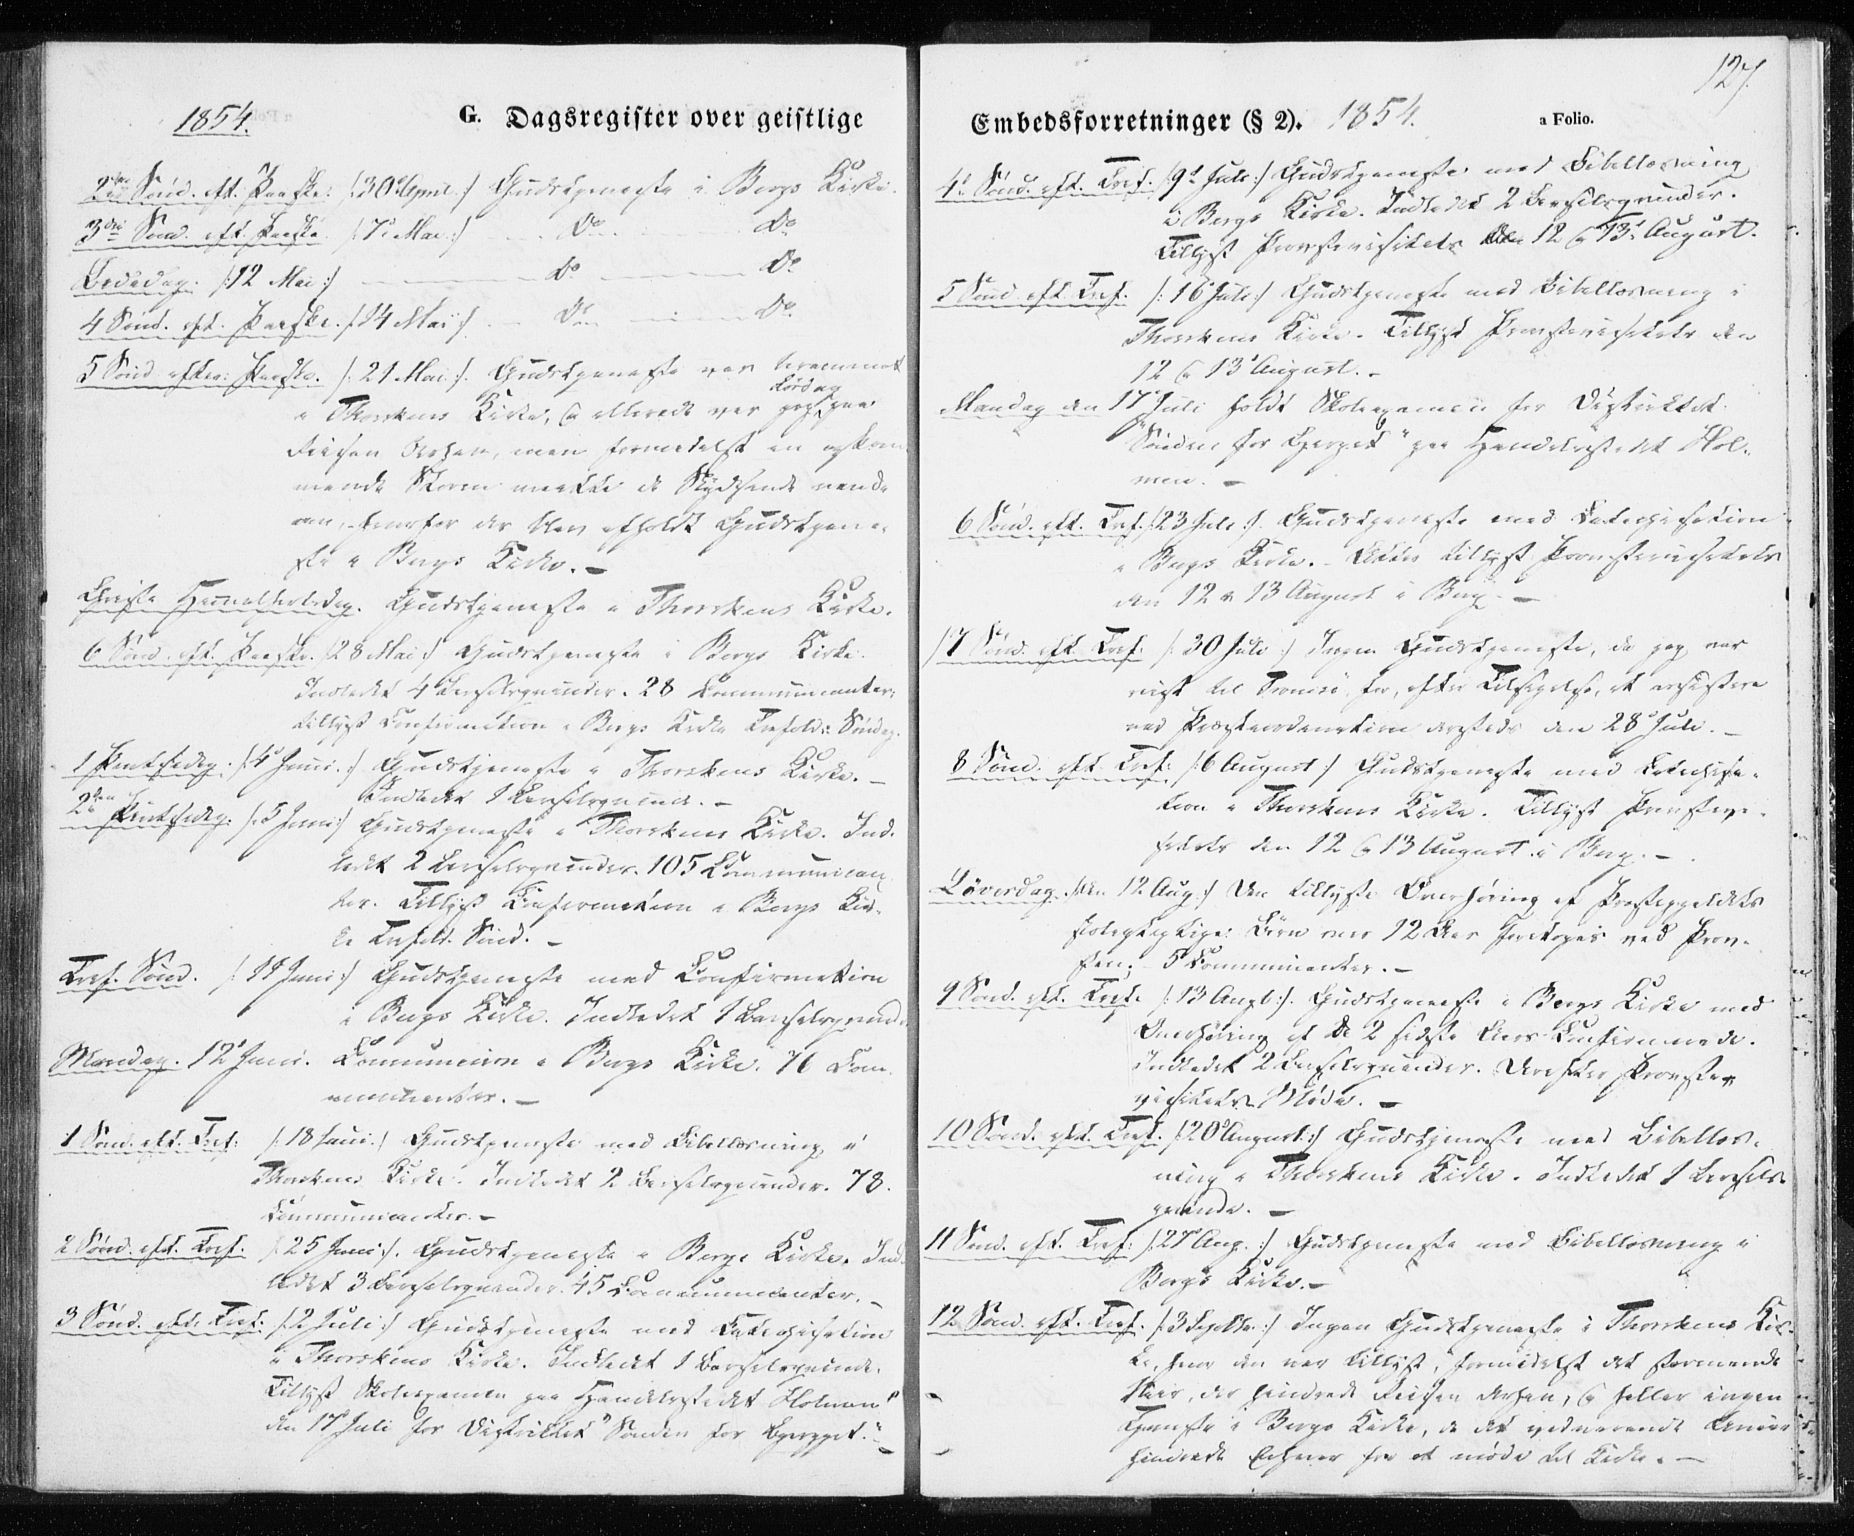 1854.
G. Dagsregister over geistlige
2den Sönd. eft. Paaske. /: 30te April :/ Gudstjeneste i Bergs Kirke.
3die Sönd. eft. Paaske. /: 7de Mai :/ Do Do
Bededag. /: 12 Mai :/ Do Do
4 Sönd. eft. Paaske. /: 14 Mai :/ Do Do
5 Sönd. efter Paaske. /: 21 Mai :/. Gudstjeneste var berammet
i Thorskens Kirke, & allerede var jeg Lördag paa
Reisen dertil, men formedelst en opkom-
mende Storm maatte de Skydsende vende
om, hvorfor der blev afholdt Gudstjene-
ste i Bergs Kirke. –
Christi Himmelfartsdag. Gudstjeneste i Thorskens Kirke.
6 Sönd. eft. Paaske. /: 28 Mai :/ Gudstjeneste i Bergs Kirke.
Indledet 4 Barselqvinder. 28 Communicanter;
tillyst Confirmation i Bergs Kirke Trefold: Söndag.
1 Pintsedag. /: 4de Juni :/ Gudstjeneste i Thorskens Kirke. –
Indledet 1 Barselqvinde. –
2den Pintsedag. /: 5 Juni :/ Gudstjeneste i Thorskens Kirke. Ind-
ledet 2 Barselqvinder. 105 Communican-
ter. Tillyst Confirmation i Bergs Kir-
ke Trefold. Sönd. –
Tref. Sönd. /: 11te Juni :/ Gudstjeneste med Confirmation
i Bergs Kirke. Indledet 1 Barselqvinde.
Mandag. 12te Juni. Communion i Bergs Kirke. 76 Com-
municanter. –
1 Sönd. eft. Tref: /: 18 Juni :/ Gudstjeneste med Bibellæsning i
Thorskens Kirke. Indledet 2 Barselqvinder. 78.
Communicanter. –
2 Sönd. eft. Tref. /: 25 Juni :/. Gudstjeneste i Bergs Kirke. Ind-
ledet 3 Barselqvinder. 45 Communicanter. –
3 Sönd. eft. Tref: /: 2 Juli :/ Gudstjeneste med Catechisation
i Thorskens Kirke. Indledet 1 Barselqvinde.
Tillyst Skoleexamen paa Handelsstedet "Holmen"
den 17de Juli for Distriktet "Sönden for Bjerget." –
127.
Embedsforretninger (§ 2). 1854. a Folio.
4de Sönd. eft. Tref. /: 9de Juli :/ Gudstjeneste med Bibellæsning
i Bergs Kirke. Indledet 2 Barselqvinder.
Tillyst Provstevisitats den 12 & 13de August.
5 Sönd. eft. Tref. /: 16 Juli :/ Gudstjeneste med Bibellæsning i
Thorskens Kirke. Tillyst Provstevisitats den
12 & 13de August. –
Mandag den 17de Juli holdt Skoleexamen for Distriktet
"Sönden for Bjerget" paa Handelsstedet Hol-
men. –
6 Sönd. eft. Tref. /: 23 Juli :/. Gudstjeneste med Catechisation
i Bergs Kirke. – tillyst Provstevisitats
den 12 & 13 August i Berg. –
7 Sönd. eft. Tref. /: 30 Juli :/ Ingen Gudstjeneste, da jeg var
reist til Tromsö for, efter Tilsigelse, at assistere
ved Præsteordination dersteds den 28de Juli. –
8 Sönd. eft. Tref. /: 6 August :/ Gudstjeneste med Catechisa-
tion i Thorskens Kirke. Tillyst Provstevi-
sitats den 12 & 13 August i Berg. –
Löverdag. /: den 12 Aug :/ Den tillyste Overhöring af Præstegjeldets
skolepligtige Börn over 12 Aar foretoges ved Prov-
sten; – 5 Communicanter. –
9 Sönd. eft. Tref. /: 13 Augt. :/. Gudstjeneste i Bergs Kirke med
Overhöring af de 2 sidste Aars Confirmerede.
Indledet 2 Barselqvinder. Derefter Provste-
visitats Möde. –
10 Sönd. eft. Tref. /: 20de August :/ Gudstjeneste med Bibellæs-
ning i Thorskens Kirke. Indledet 1 Barsels-
qvinde. –
11 Sönd. eft. Tref: /: 27de Aug. :/ Gudstjeneste med Bibellæsning i
Bergs Kirke. –
12 Sönd. eft. Tref. /: 3 Septbr. :/ Ingen Gudstjeneste i Thorskens Kir-
ke, hvor den var tillyst, formedelst det stormende
Veir, der hindrede Reisen dertil, & heller ingen
Tjeneste i Bergs Kirke, da det vedvarende Uveir
hindrede Enhver for at möde til Kirke. –